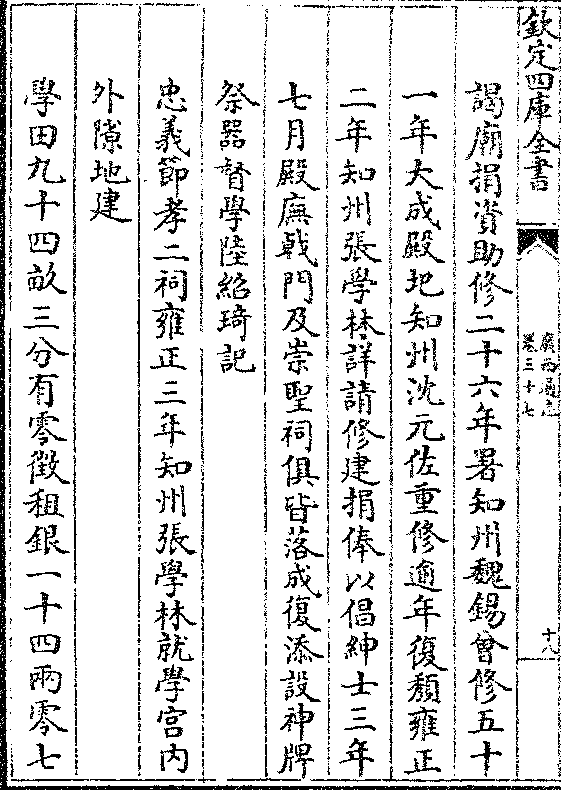 欽定四庫全書
廣西通志
卷三十七
十八
謁廟捐資助修二十六年署知州魏錫曾修五十
一年大成殿圮知州沈元佐重修逾年復頽雍正
二年知州張學林詳請修建捐俸以倡紳士三年
七月殿廡㦸門及崇聖祠俱皆落成復添設神牌
祭器督學陸紹琦記
忠義節孝二祠雍正三年知州張學林就學宫内
外隙地建
學田九十四畝三分有零徵租銀一十四兩零七